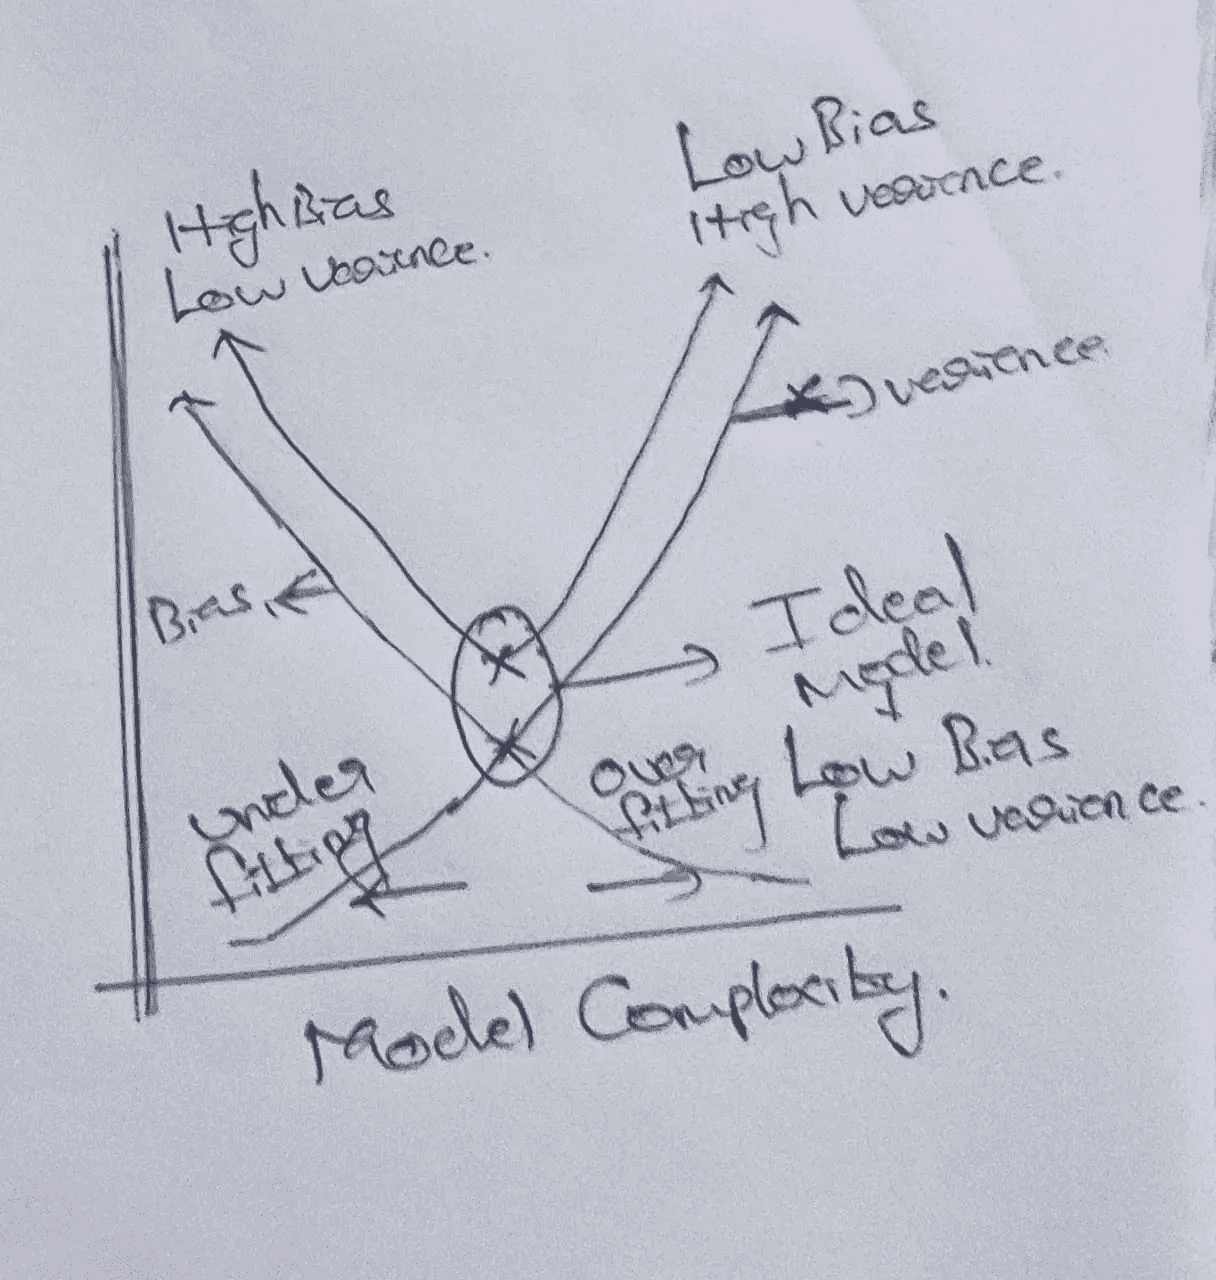 Low Bias
High varience.
High Bias
Low varience.
varience
Bias,
Ideal
Model.
Low Bias
Low varience.
under
fitting
over
fitting
Model Complexity.